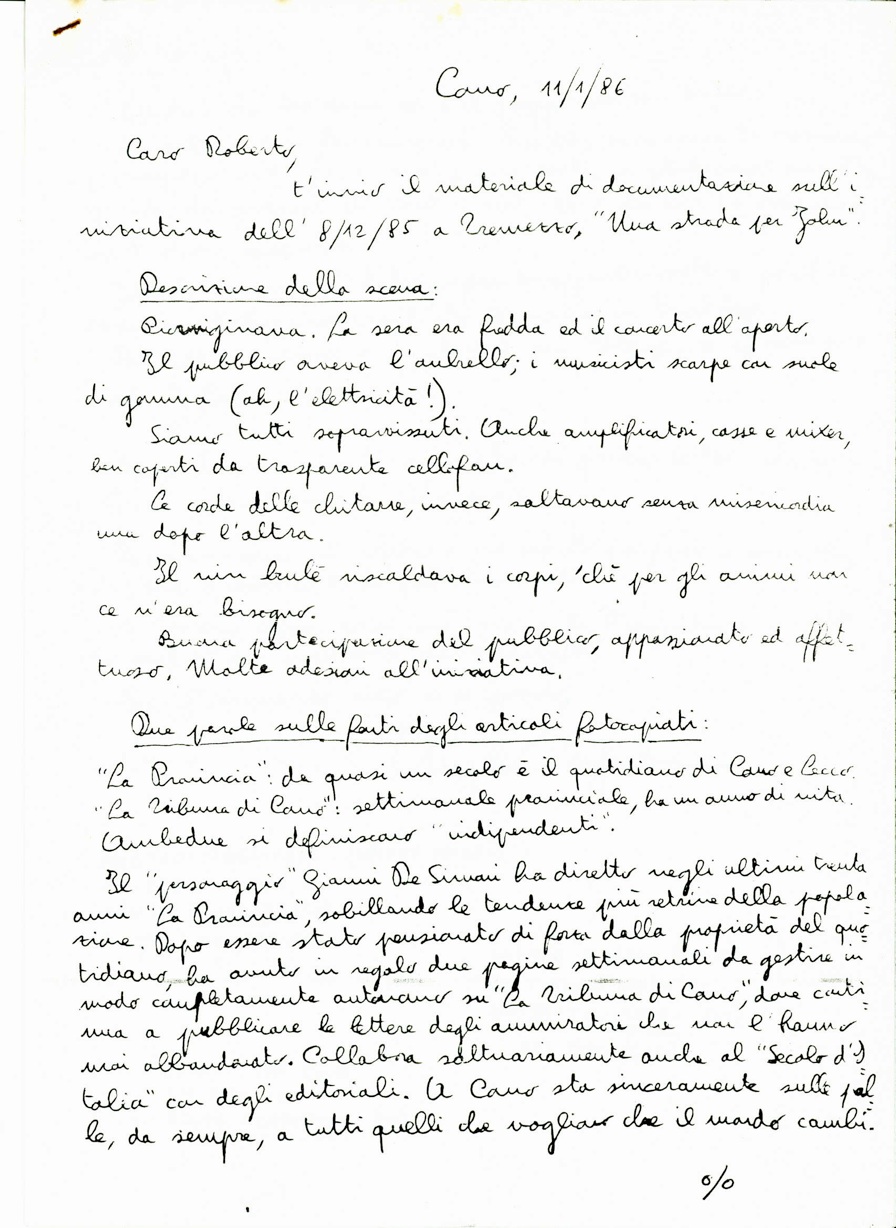 Como, 11/1/86
Caro Roberto,
t'invio il materiale di documentazione sull'i=
niziativa dell' 8/12/85 a Tremezzo, "Una strada per John".
Descrizione della scena:
Piovigginava. La sera era fredda ed il concerto all'aperto.
Il pubblico aveva l'ombrello; i musicisti scarpe con suole
di gomma (ah, l'elettricità!).
Siamo tutti sopravvissuti. Anche amplificatori, casse e mixer,
ben coperti da trasparente cellofan.
Le corde delle chitarre, invece, saltavano senza misericordia
una dopo l'altra.
Il vin brulè riscaldava i corpi, 'chè per gli animi non
ce n'era bisogno.
Buona partecipazione del pubblico, appassionato ed affet=
tuoso. Molte adesioni all'iniziativa.
Due parole sulle fonti degli articoli fotocopiati:
"La Provincia": da quasi un secolo è il quotidiano di Como e Lecco.
"La Tribuna di Como": settimanale provinciale, ha un anno di vita.
Ambedue si definiscono "indipendenti".
Il "personaggio" Gianni De Simoni ha diretto negli ultimi trenta
anni "La Provincia", sobillando le tendenze più retrive della popola=
zione. Dopo essere stato pensionato di forza dalla proprietà del quo=
tidiano ha avuto in regalo due pagine settimanali da gestire in
modo completamente autonomo su "La Tribuna di Como", dove conti=
nua a pubblicare le lettere degli ammiratori che non l'hanno
mai abbandonato. Collabora saltuariamente anche al "Secolo d'I=
talia" con degli editoriali. A Como sta sinceramente sulle pal=
le, da sempre, a tutti quelli che vogliono che il mondo cambi.
o/o